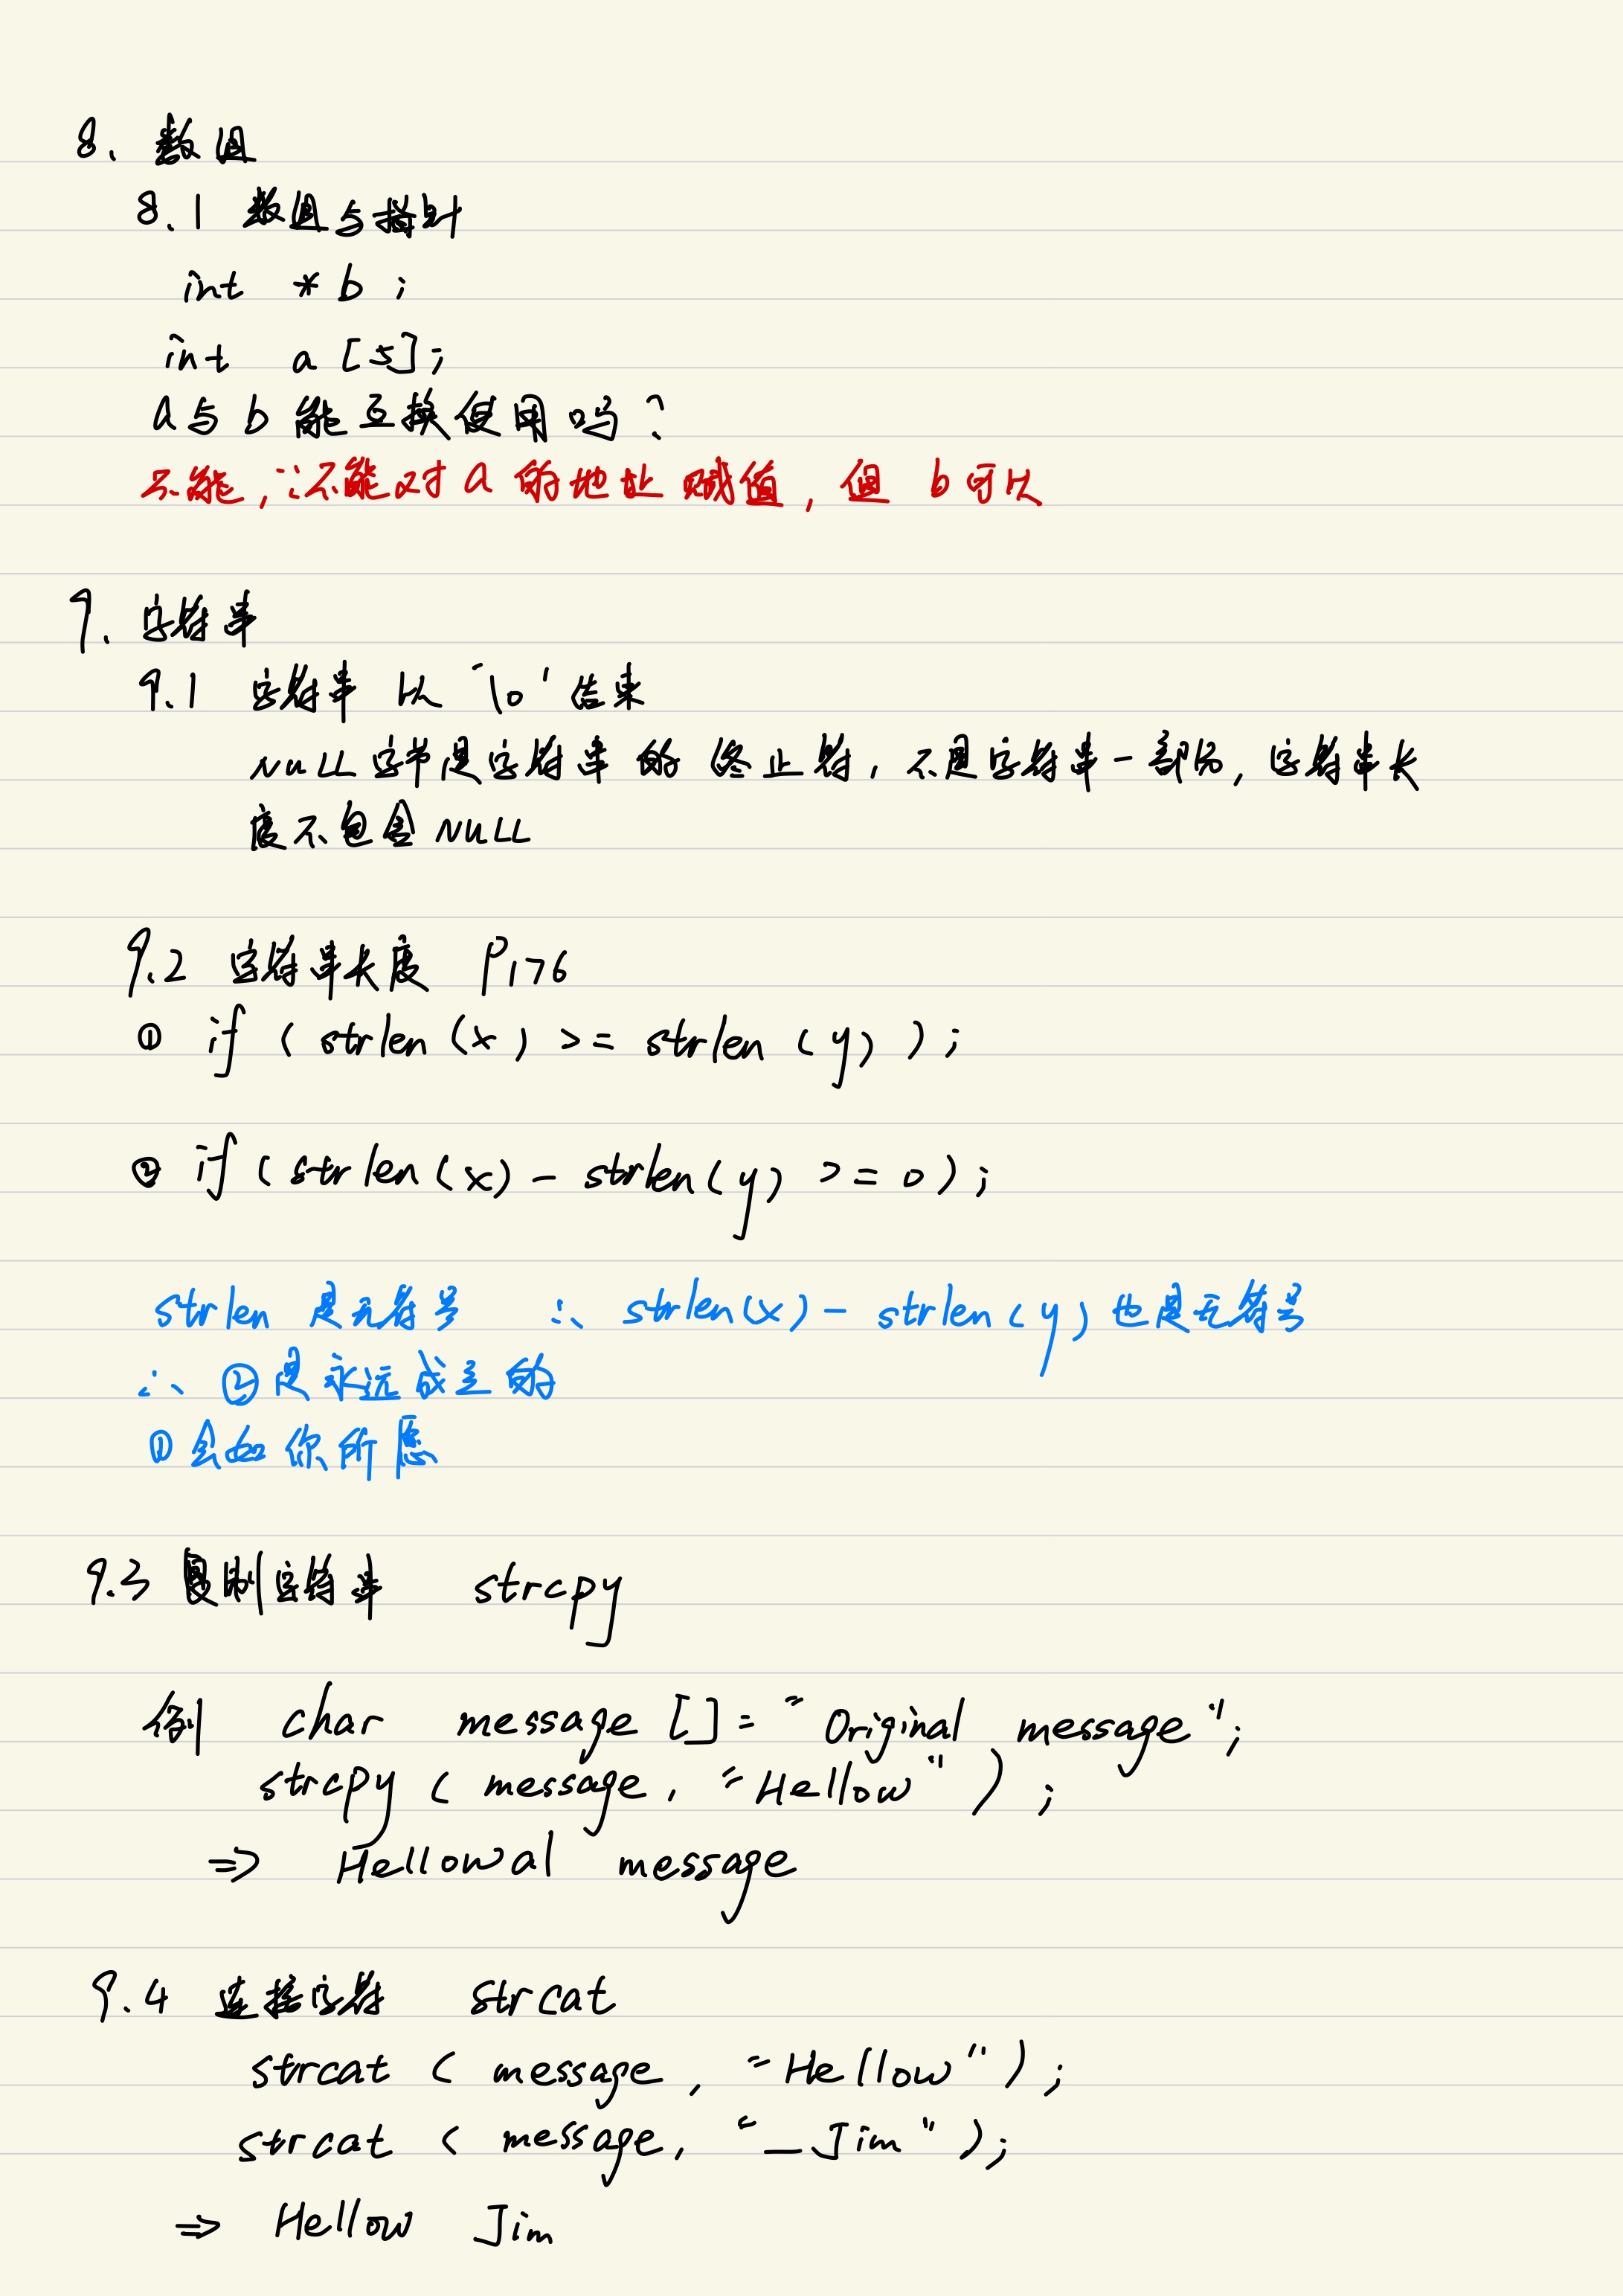 8、数组
8.1 数组与指针
int *b;
int a[5];
a与b能互换使用吗?
不能,∵不能对a的地址赋值,但b可以
9、字符串
9.1 字符串以'\0'结束
NULL字节是字符串的终止符,不是字符串一部分,字符串长
度不包含NULL
9.2 字符串长度 P176
① if (strlen(x) >= strlen(y));
② if (strlen(x) - strlen(y) >= 0);
strlen是无符号 ∴ strlen(x) - strlen(y)也是无符号
∴ ②是永远成立的
①会如你所愿
9.3 复制字符串 strcpy
例 char message[] = "Original message";
strcpy(message, "Hellow");
⇒ Hellowal message
9.4 连接字符 strcat
strcat(message, "Hellow");
strcat(message, "_Jim");
⇒ Hellow Jim